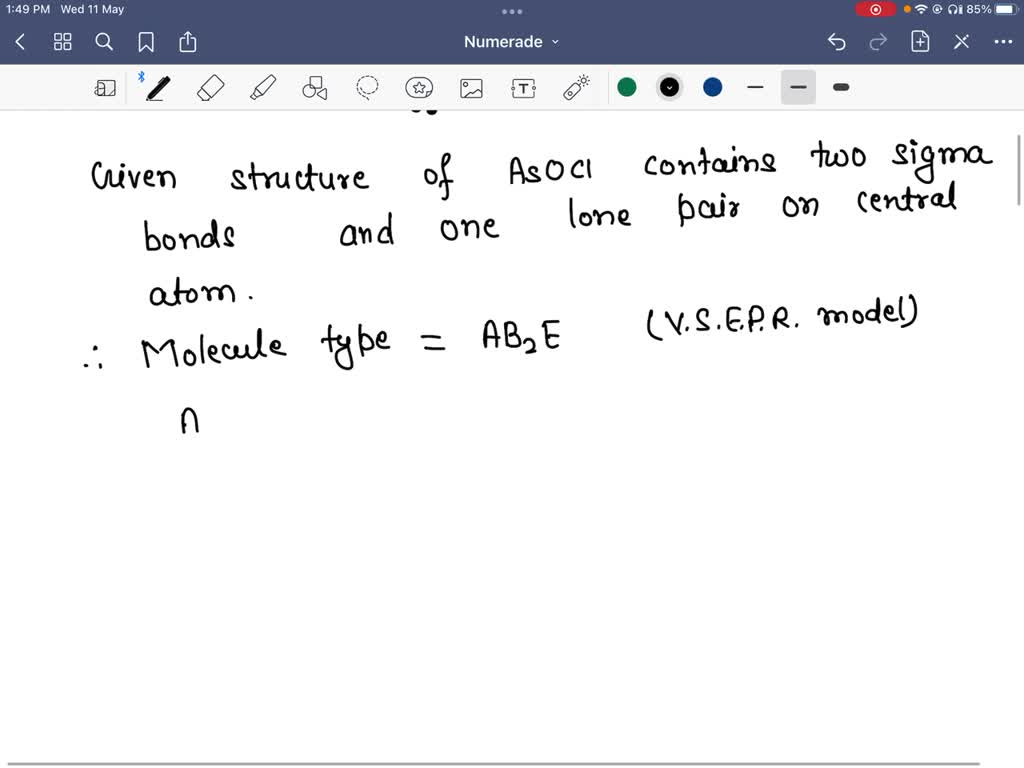 1:49 PM Wed 11 May
85%
Numerade
T
Given structure of AsOCl contains two sigma
bonds and one lone pair on central
atom.
∴ Molecule type = AB₂E (V.S.E.P.R. model)
A